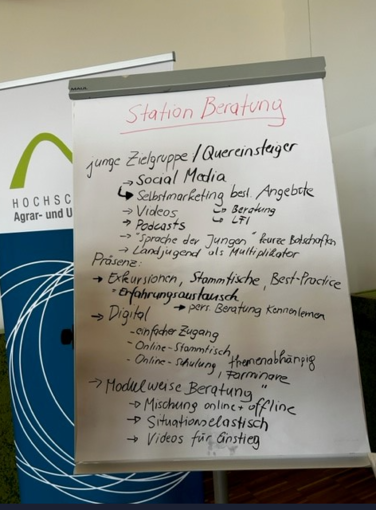 Station Beratung
junge Zielgruppe / Quereinsteiger
→ Social Media
↳ Selbstmarketing best. Angebote
→ Videos ↳ Beratung
→ Podcasts ↳ LFI
→ "Sprache der Jungen" kurze Botschaften
→ Landjugend als Multiplikator
Präsenz:
→ Exkursionen, Stammtische, Best-Practice
"Erfahrungsaustausch
→ pers. Beratung Kennenlernen
→ Digital
- einfacher Zugang
- Online-Stammtisch
- Online-Schulung, themenabhängig
, Farminare
→ Modulweise Beratung"
→ Mischung online + offline
→ Situationselastisch
→ Videos für Einstieg
HOCHSC
Agrar- und U